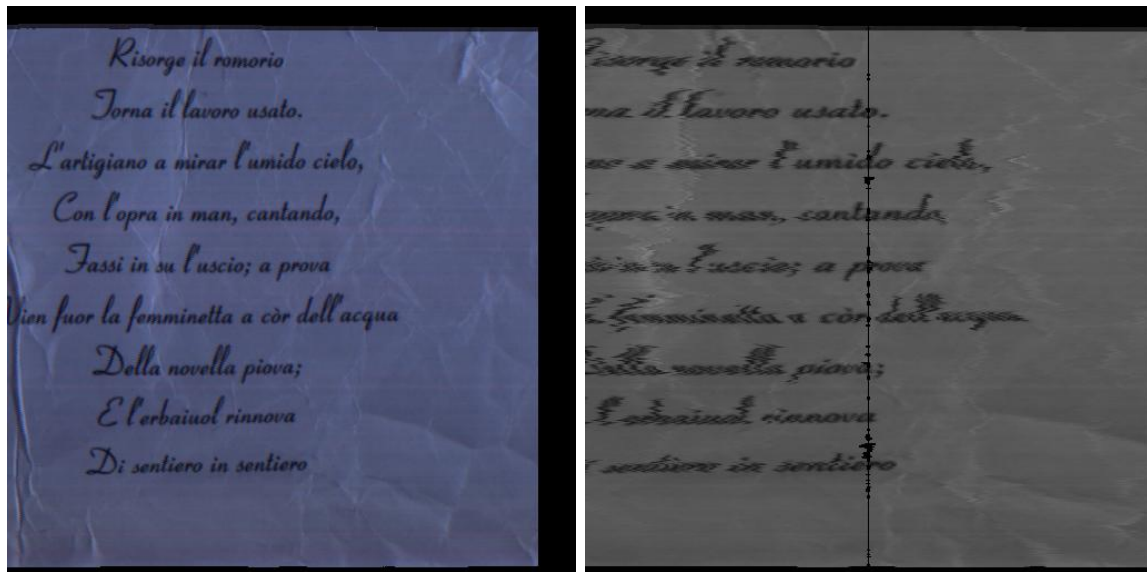 Risorge il romorio
Torna il lavoro usato.
L'artigiano a mirar l'umido cielo,
Con l'opra in man, cantando,
Fassi in su l'uscio; a prova
Vien fuor la femminetta a còr dell'acqua
Della novella piova;
E l'erbaiuol rinnova
Di sentiero in sentiero
isorge il romorio
rna il lavoro usato.
no a mirar l'umido cielo,
opra in man, cantando
in su l'uscio; a prova
femminetta a còr dell'acqua
novella piova;
l'erbaiuol rinnova
sentiero in sentiero